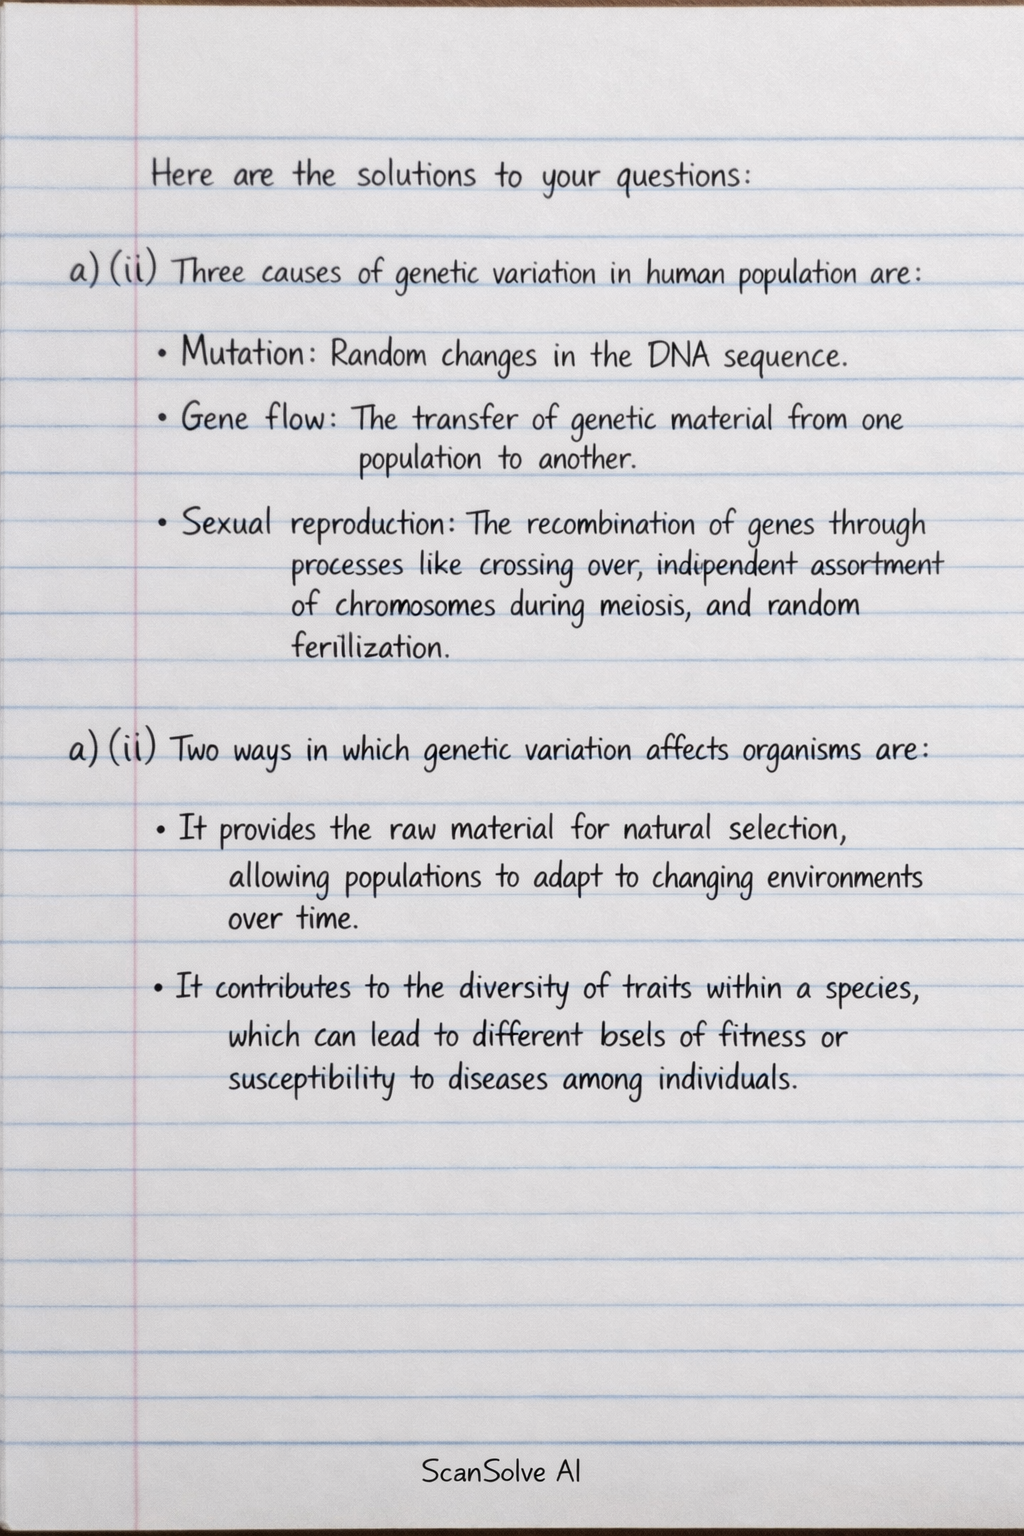 Here are the solutions to your questions:
a) (ii) Three causes of genetic variation in human population are:
• Mutation: Random changes in the DNA sequence.
• Gene flow: The transfer of genetic material from one
population to another.
• Sexual reproduction: The recombination of genes through
processes like crossing over, indipendent assortment
of chromosomes during meiosis, and random
ferillization.
a) (ii) Two ways in which genetic variation affects organisms are:
• It provides the raw material for natural selection,
allowing populations to adapt to changing environments
over time.
• It contributes to the diversity of traits within a species,
which can lead to different bsels of fitness or
susceptibility to diseases among individuals.
ScanSolve AI